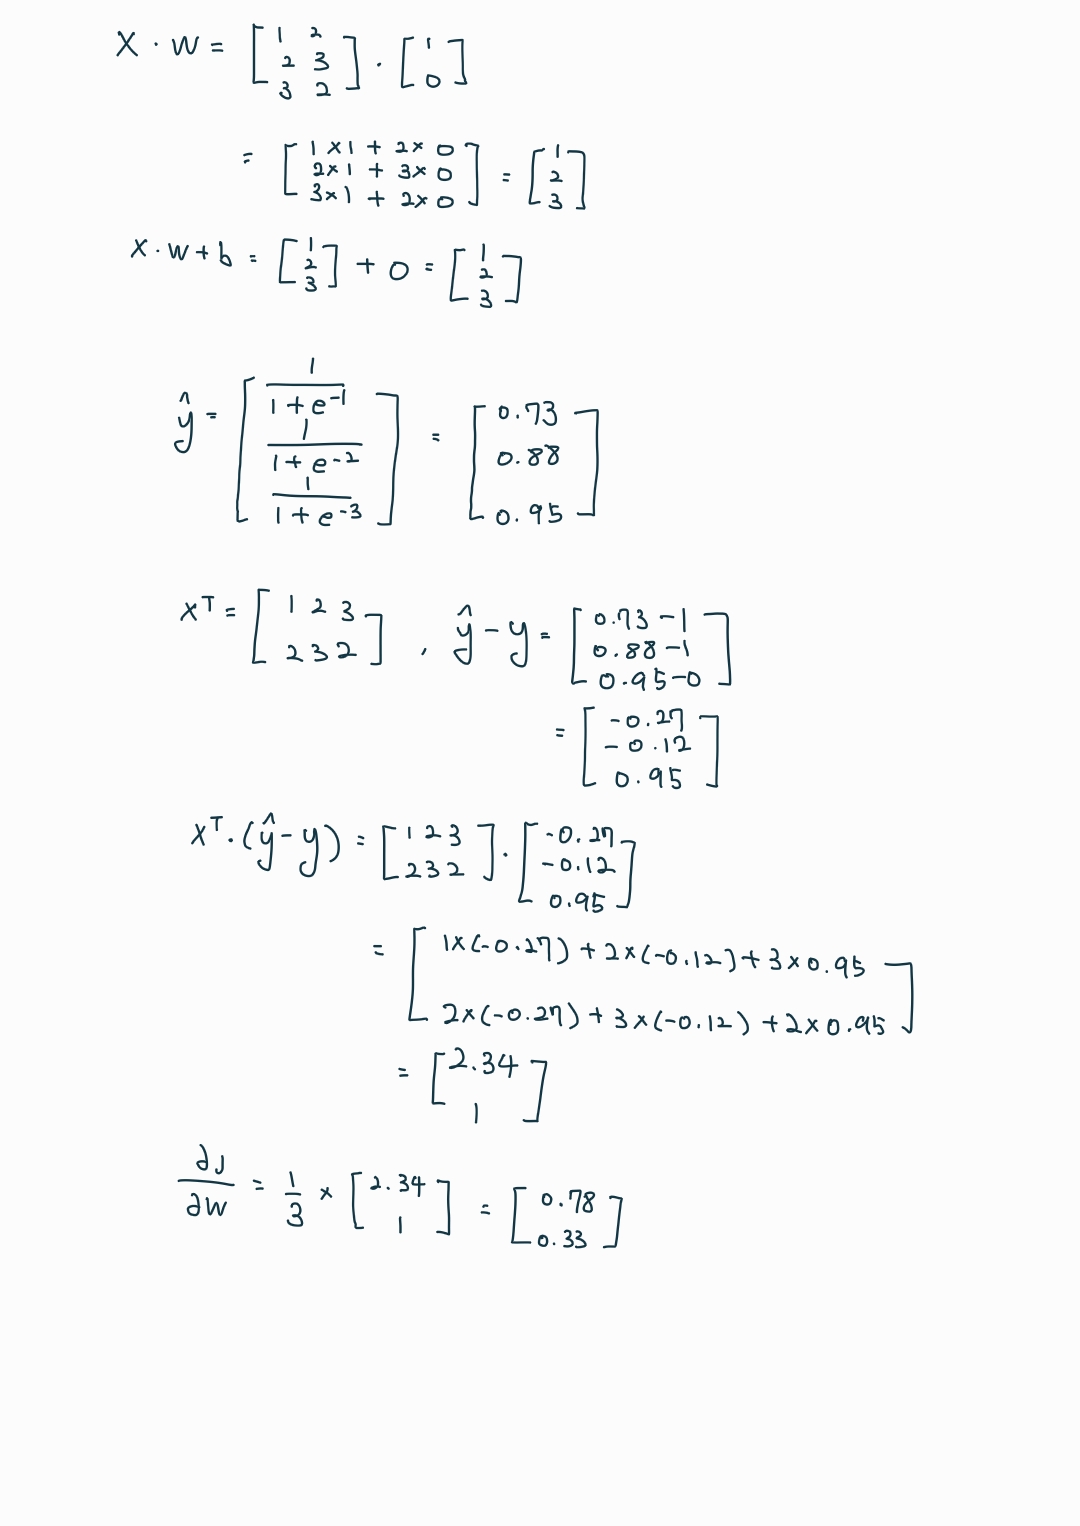 X · w = [1 2; 2 3; 3 2] · [1; 0]
= [1×1 + 2×0; 2×1 + 3×0; 3×1 + 2×0] = [1; 2; 3]
X · w + b = [1; 2; 3] + 0 = [1; 2; 3]
ŷ = [1/(1+e^-1); 1/(1+e^-2); 1/(1+e^-3)] = [0.73; 0.88; 0.95]
X^T = [1 2 3; 2 3 2] , ŷ - y = [0.73-1; 0.88-1; 0.95-0]
= [-0.27; -0.12; 0.95]
X^T · (ŷ - y) = [1 2 3; 2 3 2] · [-0.27; -0.12; 0.95]
= [1×(-0.27) + 2×(-0.12) + 3×0.95; 2×(-0.27) + 3×(-0.12) + 2×0.95]
= [2.34; 1]
∂J/∂w = 1/3 × [2.34; 1] = [0.78; 0.33]